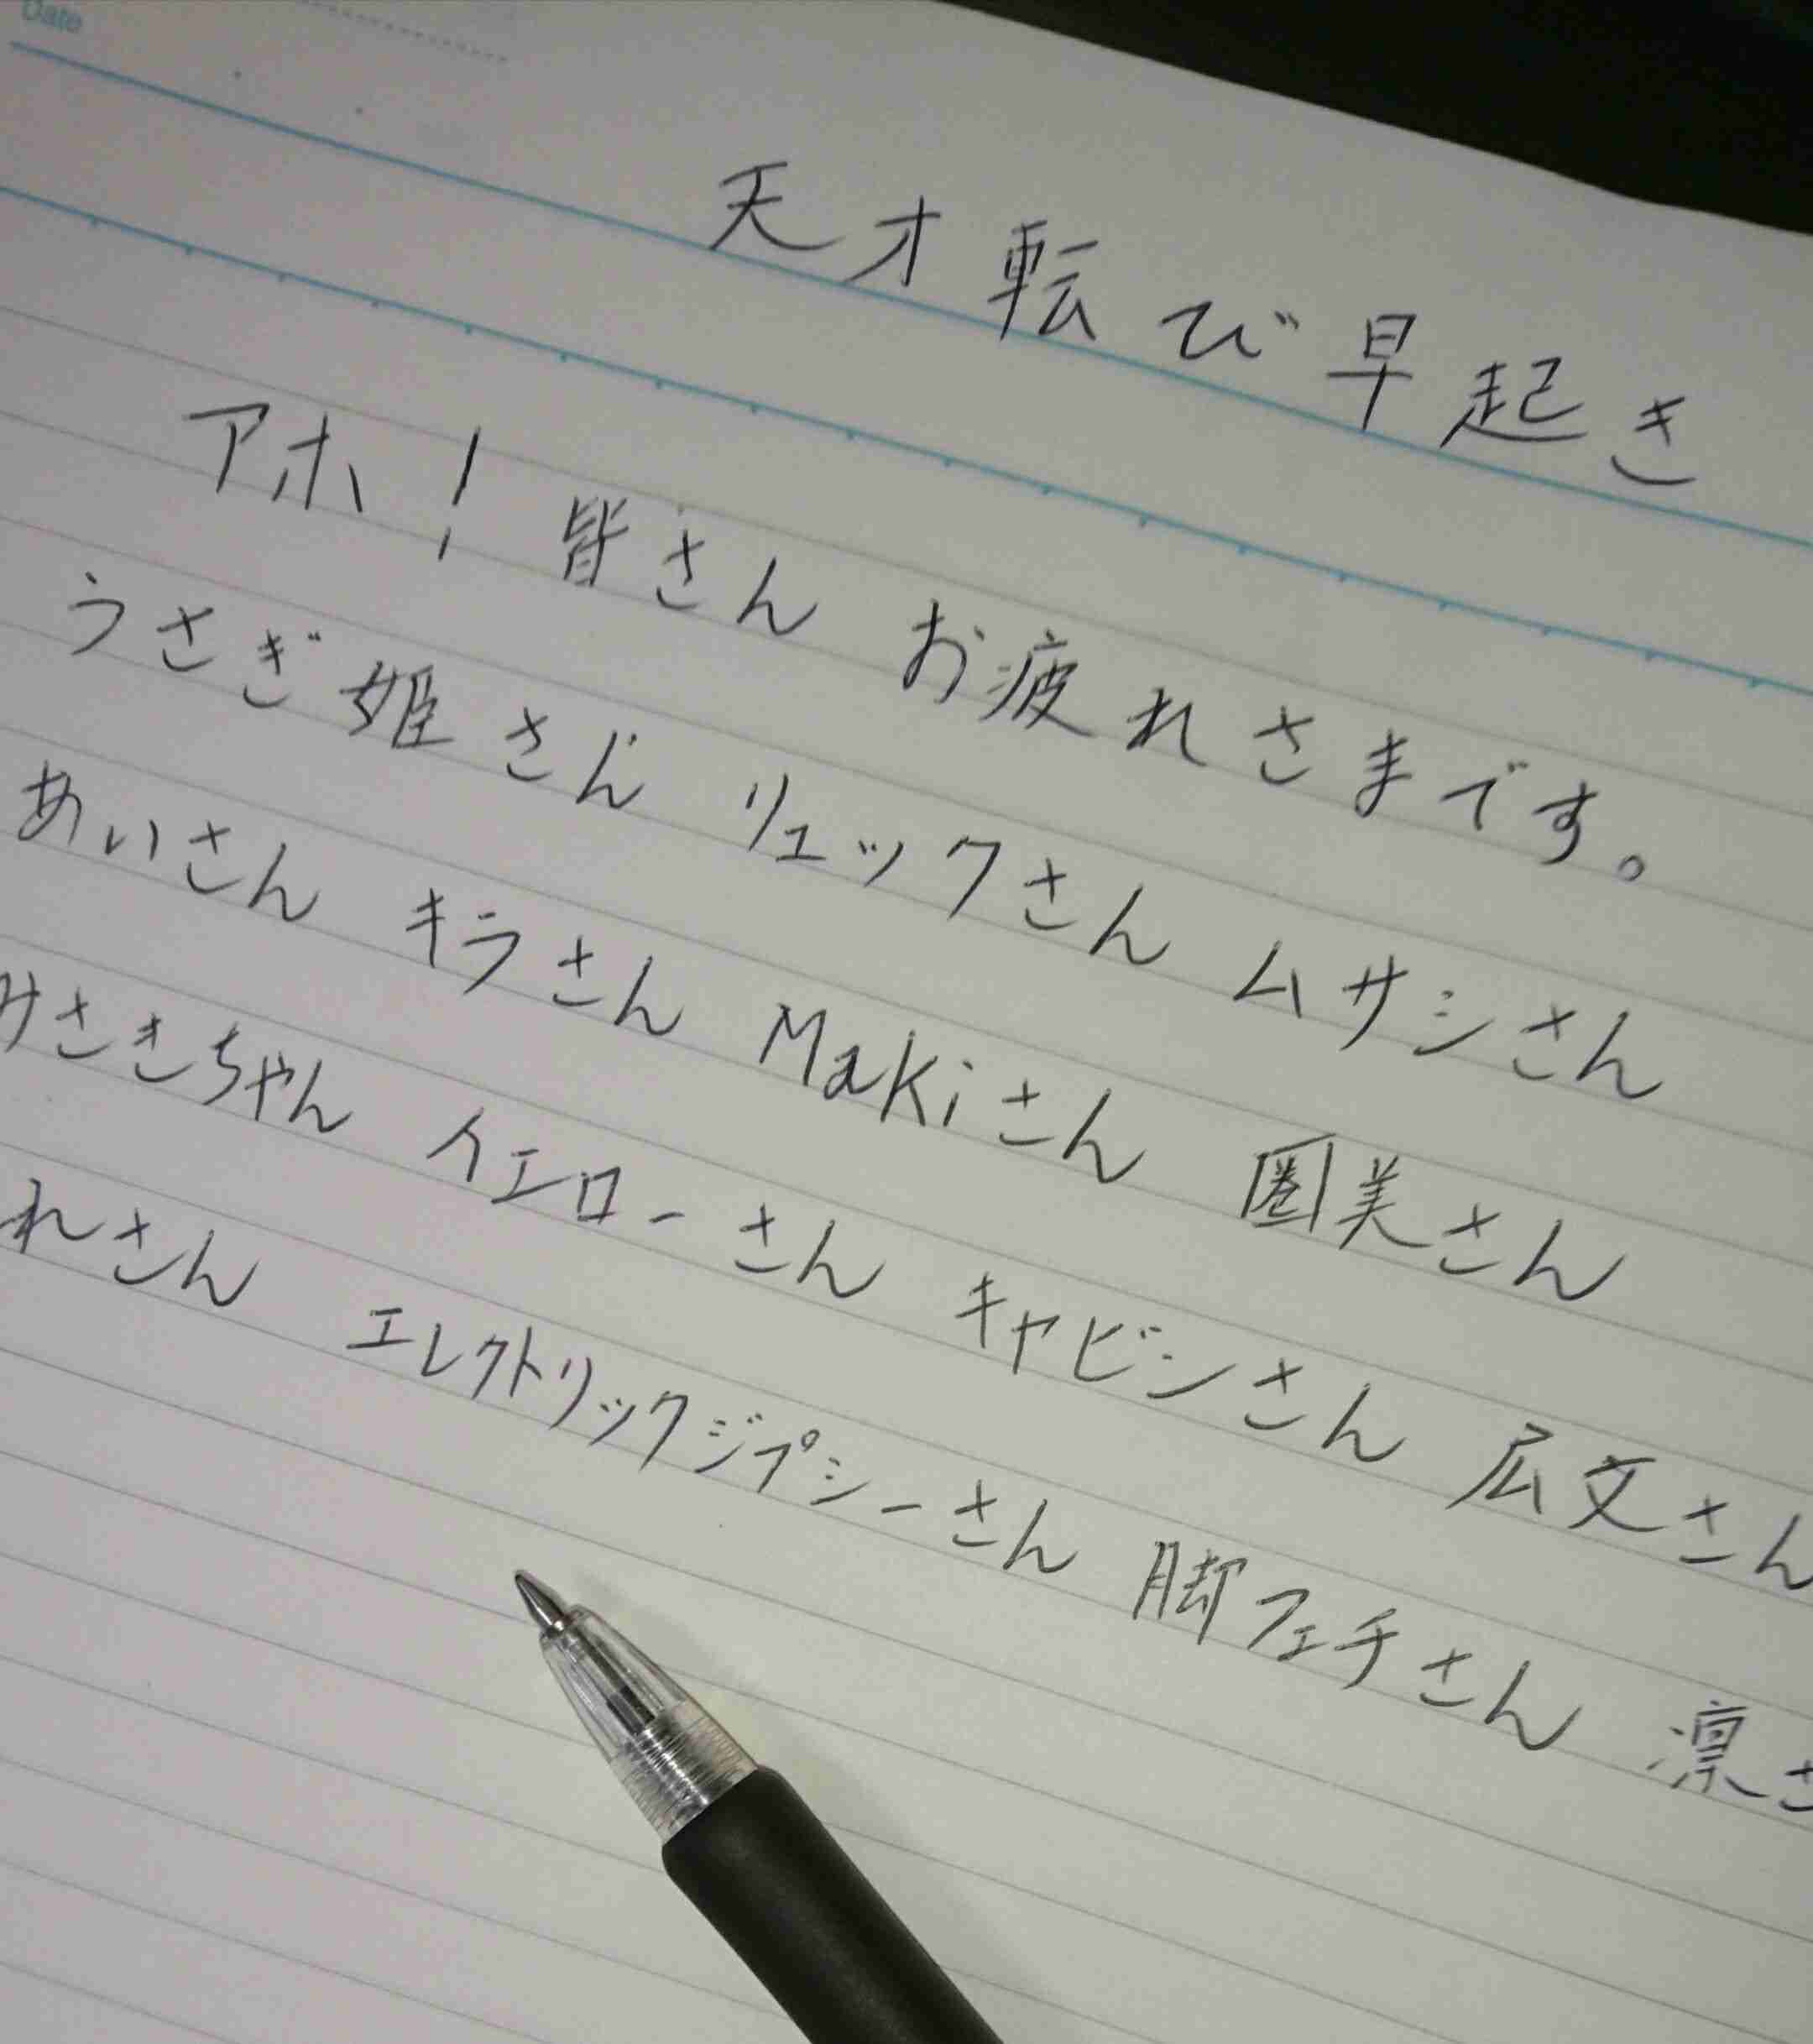 Date
天才転び早起き
アホ!皆さん お疲れさまです。
うさぎ姫さん リュックさん ムサシさん
あいさん キラさん Makiさん 圏美さん
みさきちゃん イエローさん キャビンさん 広文さん
れさん エレクトリックジプシーさん 脚フェチさん 凛さ